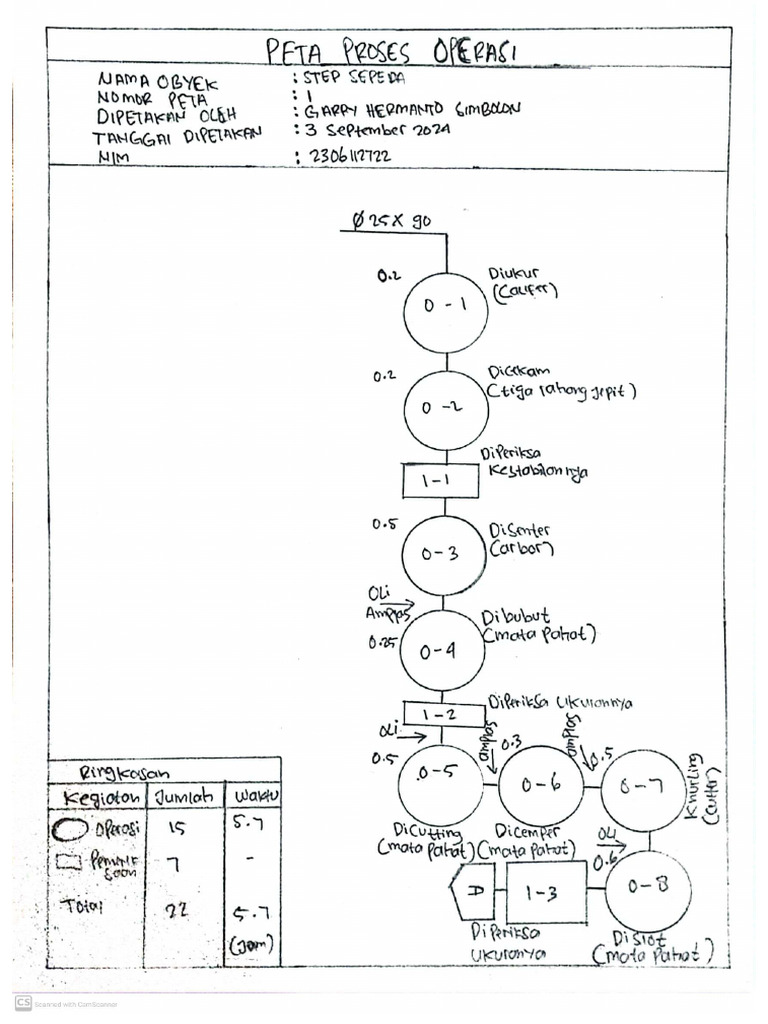 PETA PROSES OPERASI
NAMA OBYEK : STEP SEPEDA
NOMOR PETA : 1
DIPETAKAN OLEH : GARRY HERMANTO SIMBOLON
TANGGAl DIPETAKAN : 3 September 2024
NIM : 2306112722
Ø 25 X 90
0.2
Diukur
O - 1
0.2
Dicekam
(tiga rahang jepit)
O - 2
Diperiksa
Kestabilannya
1-1
0.5
Disenter
(Carbor)
O - 3
Oli
Amplas
0.25
Dibubut
(mata pahat)
O - 4
Diperiksa Ukurannya
1-2
Oli
0.5
O-5
Dicutting
(mata pahat)
amplas
0.3
O-6
Dicemper
(mata pahat)
amplas
0.5
O-7
Knurling
(cutter)
Oli
0.6
O-8
Dislot
(mata pahat)
1-3
Diperiksa
Ukurannya
D
Ringkasan
Kegiatan Jumlah Waktu
Operasi 15 5.7
7 -
Total 22 5.7
(Jam)
CS Scanned with CamScanner